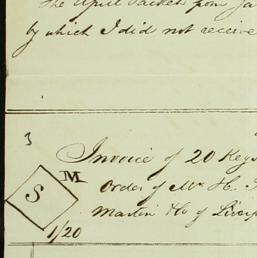 The April Packets from Ja
by which I did not receive
3
Invoice of 20 Kegs
M
Order of Mr. H.
S
Martin Ho of Liverp
1/20